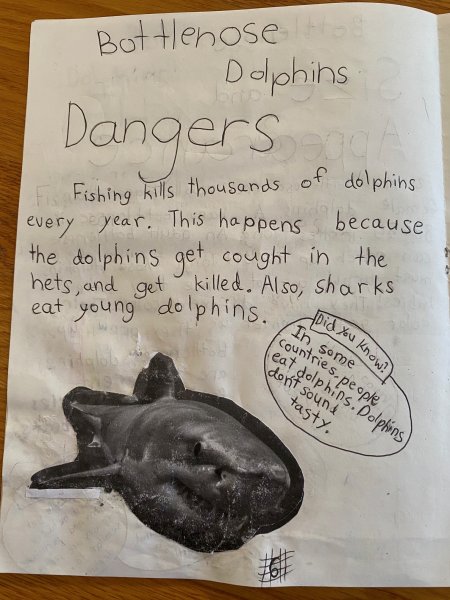 Bottlenose
Dolphins
Dangers
Fishing kills thousands of dolphins
every year. This happens because
the dolphins get cought in the
nets, and get killed. Also, sharks
eat young dolphins.
Did You Know?
In some
countries, people
eat dolphins. Dolphins
don't sound
tasty.
6